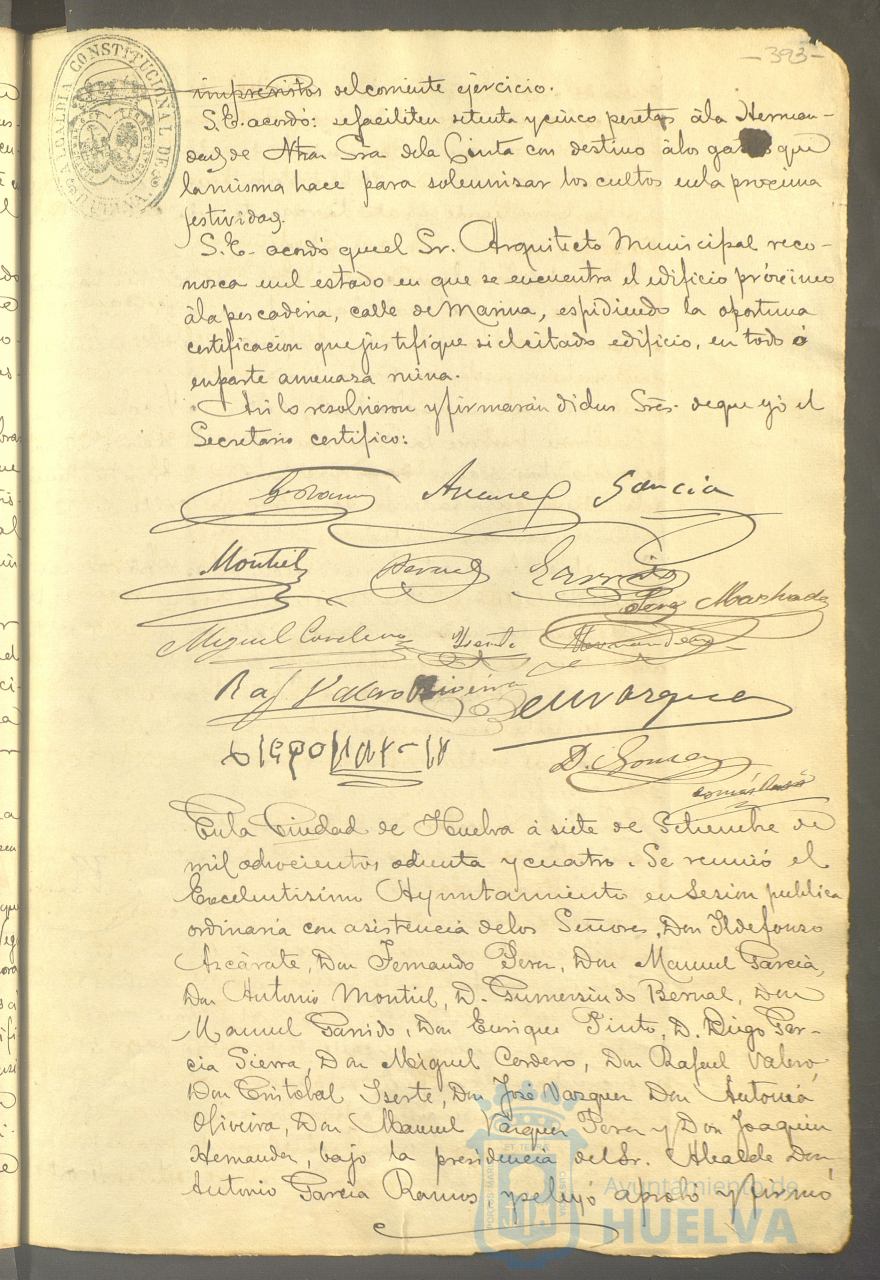 -393-
ALCALDIA CONSTITUCIONAL DE
imprevistos del corriente ejercicio.
S.E. acordó: se faciliten setenta y cinco pesetas á la Herman-
dad de Ntra Sra de la Cinta con destino á los gastos que
la misma hace para solemnizar los cultos en la proxima
festividad.
S.E. acordó que el Sr. Arquitecto Municipal reco-
nosca en el estado en que se encuentra el edificio próximo
á la pescaderia, calle de Marina, espidiendo la oportuna
certificacion que justifique si el citado edificio, en todo ó
en parte amenasa ruina.
Asi lo resolvieron y firmarán dichos Sres. de que yó el
Secretario certifico:
Garcia
Montiel Bernal Garrido
Perez Machado
Miguel Cordero Iserte Hernandez
Raf Valero Oliveira M Vazquez
Diego Garcia
D. Gomez
En la Ciudad de Huelva á siete de Setiembre de
mil ochocientos ochenta y cuatro. Se reunió el
Excelentisimo Ayuntamiento en Sesion publica
ordinaria con asistencia de los Señores, Don Ildefonso
Azcárate, Don Fernando Perez, Don Manuel Garcia,
Don Antonio Montiel, D. Gumersindo Bernal, Don
Manuel Garrido, Don Enrique Pinto, D. Diego Gar-
cia Sierra, Don Miguel Cordero, Don Rafael Valero,
Don Cristobal Iserte, Don José Vazquez Don Antonio
Oliveira, Don Manuel Vazquez Perez y Don Joaquin
Hernandez, bajo la presidencia del Sr. Alcalde Don
Antonio Garcia Ramos y se leyó aprobó y firmó
Ayuntamiento de
HUELVA